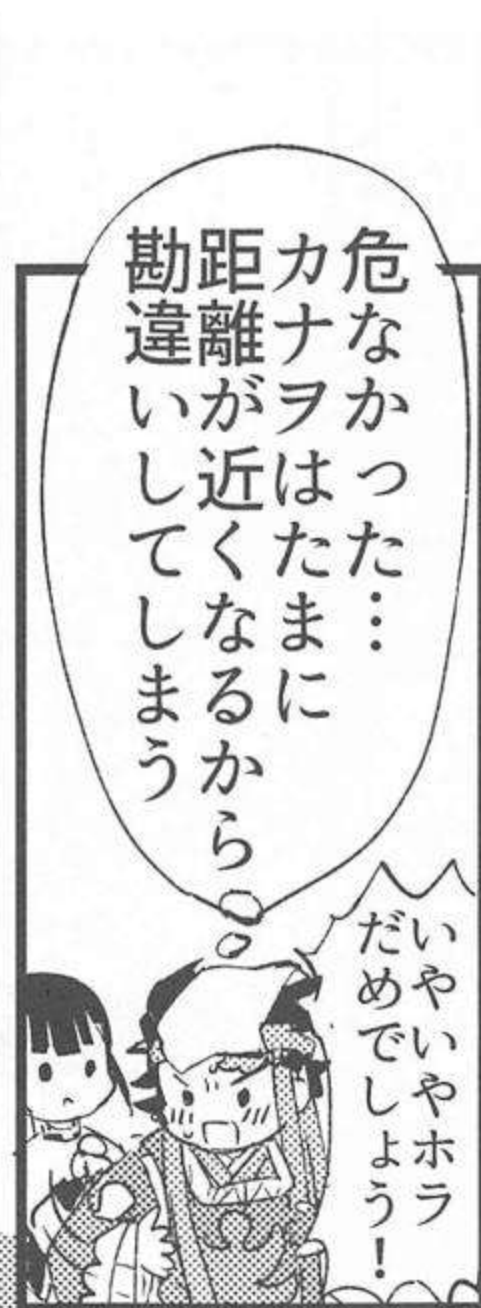 危なかった…
カナヲはたまに
距離が近くなるから
勘違いしてしまう
いやいやホラ
だめでしょう!